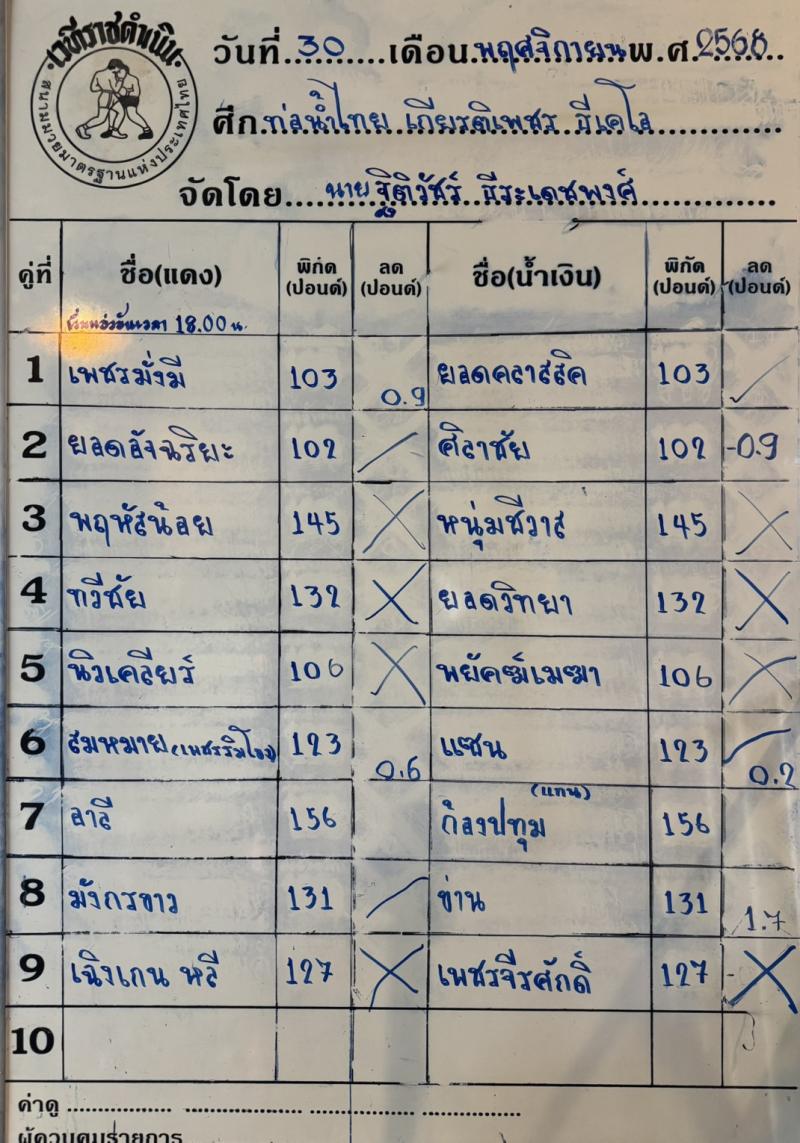 เวทีราชดำเนิน
สนามมวยมาตรฐานแห่งประเทศไทย
วันที่ 30 เดือน พฤศจิกายน พ.ศ. 2568
ศึก ท่อน้ำไทย เกียรติเพชร ทีเคโอ
จัดโดย นายฐิติวัชร์ ธีระเดชพงศ์
คู่ที่ ชื่อ(แดง) พิกัด (ปอนด์) ลด (ปอนด์) ชื่อ(น้ำเงิน) พิกัด (ปอนด์) ลด (ปอนด์)
เวลา 18.00 น.
1 เพชรมั่งมี 103 0.9 ยอดคลาสสิค 103
2 ยอดอัจฉริยะ 102 ศิลาชัย 102 -0.9
3 พฤหัสน้อย 145 หนุ่มชีวาส 145
4 ทวีชัย 132 ยอดวิทยา 132
5 นิวเคลียร์ 106 พยัคฆ์เมฆา 106
6 สมหมาย 123 0.6 แซน 123 0.2
7 อาลี 156 ก้องปทุม (แทน) 156
8 มังกรขาว 131 ข่าน 131 1.7
9 เฉิงเกน หลี 127 เพชรจีรศักดิ์ 127
10
ค่าดู
ผู้ควบคุมรายการ